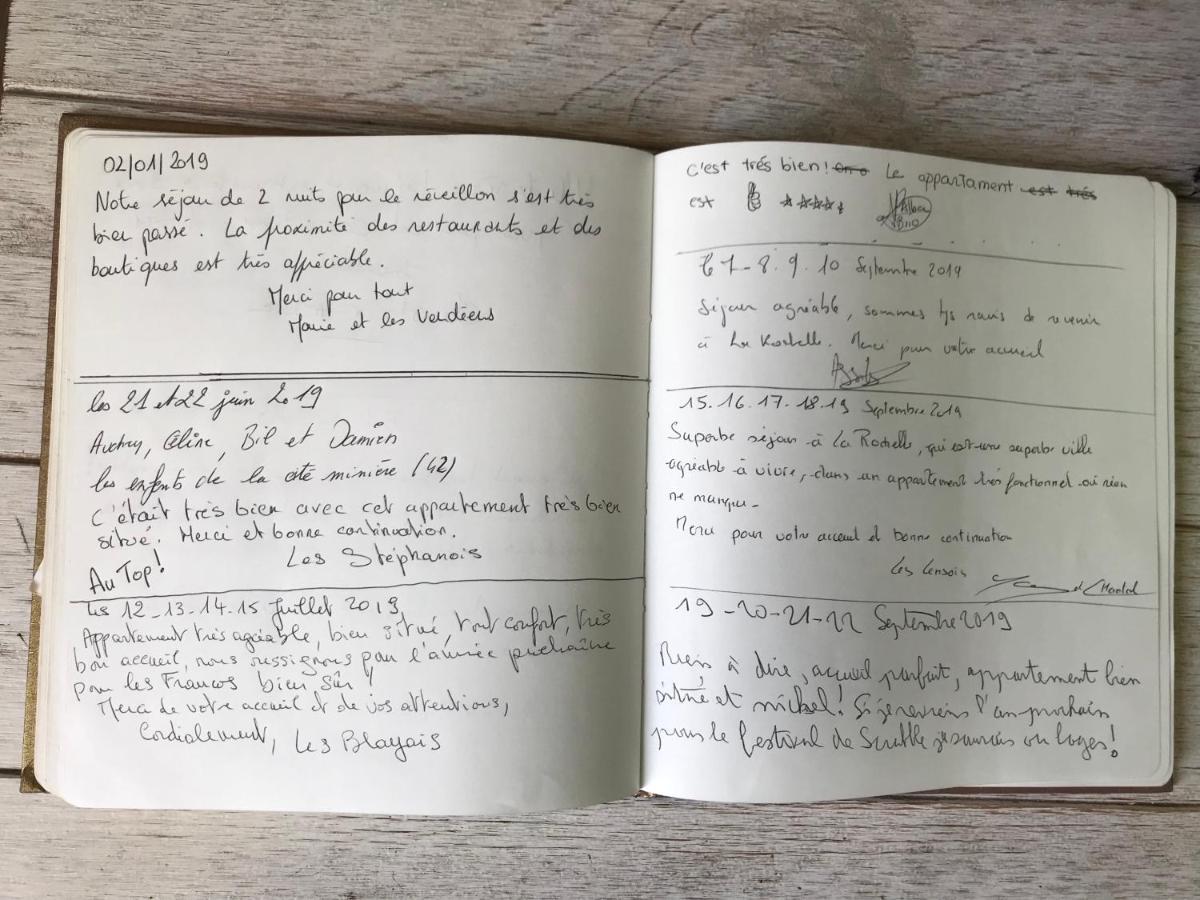 02/01/2019
Notre séjour de 2 nuits pour le réveillon s'est très
bien passé. La proximité des restaurants et des
boutiques est très appréciable.
Merci pour tout
Marie et les Vendéens
les 21 et 22 juin 2019
Audrey, Céline, Bil et Damien
les enfants de la cité minière (42)
C'était très bien avec cet appartement très bien
situé. Merci et bonne continuation.
Au Top! Les Stéphanois
Les 12-13-14-15 Juillet 2019,
Appartement très agréable, bien situé, tout confort, très
bon accueil, nous ressignons pour l'année prochaine
pour les Francos bien sûr!
Merci de votre accueil et de vos attentions,
Cordialement, Les Blayais
C'est trés bien! Le appartament est trés
est
7-8.9.10 Septembre 2019
Séjour agréable, sommes tjs ravis de revenir
à La Rochelle. Merci pour votre accueil
15.16.17.18.19 Septembre 2019
Superbe séjour à La Rochelle, qui est une superbe ville
agréable à vivre, dans un appartement très fonctionnel où rien
ne manque.
Merci pour votre accueil et bonne continuation
Les Lensois
19-20-21-22 Septembre 2019
Rien à dire, accueil parfait, appartement bien
situé et nickel! Si je reviens l'an prochain
pour le festival de Scrabble je saurais où loger!